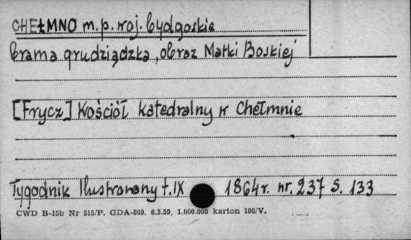 CHEŁMNO m.p. woj. bydgoskie
brama grudziądzka, obraz Matki Boskiej
[Frycz] Kościół katedralny w Chełmnie
Tygodnik Ilustrowany t.IX 1864r. nr. 237 S. 133
CWD B-15b Nr 515/P. GDA-809. 6.3.59. 1.000.000 karton 180/V.